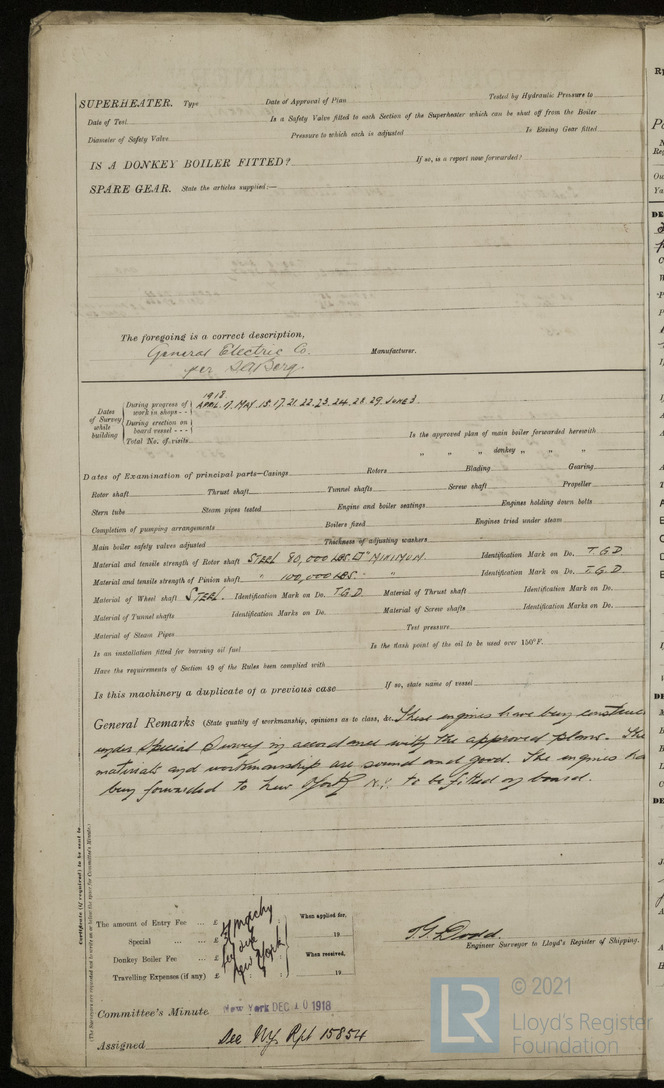 SUPERHEATER. Type Date of Approval of Plan Tested by Hydraulic Pressure to
Date of Test Is a Safety Valve fitted to each Section of the Superheater which can be shut off from the Boiler
Diameter of Safety Valve Pressure to which each is adjusted Is Easing Gear fitted
IS A DONKEY BOILER FITTED? If so, is a report now forwarded?
SPARE GEAR. State the articles supplied:—
The foregoing is a correct description,
General Electric Co. Manufacturer.
per
1918
Dates of Survey while building
During progress of work in shops - - APRIL 17. MAY. 15. 17. 21. 22. 23. 24. 28. 29. JUNE 3
During erection on board vessel - - -
Total No. of visits
Is the approved plan of main boiler forwarded herewith
" " " donkey " " "
Dates of Examination of principal parts—Casings Rotors Blading Gearing
Rotor shaft Thrust shaft Tunnel shafts Screw shaft Propeller
Stern tube Steam pipes tested Engine and boiler seatings Engines holding down bolts
Completion of pumping arrangements Boilers fixed Engines tried under steam
Main boiler safety valves adjusted Thickness of adjusting washers
Material and tensile strength of Rotor shaft STEEL 80,000 LBS. □" MINIMUM. Identification Mark on Do. T.G.D
Material and tensile strength of Pinion shaft " 100,000 LBS. " Identification Mark on Do. T.G.D
Material of Wheel shaft STEEL. Identification Mark on Do. T.G.D. Material of Thrust shaft Identification Mark on Do.
Material of Tunnel shafts Identification Marks on Do. Material of Screw shafts Identification Marks on Do.
Material of Steam Pipes Test pressure
Is an installation fitted for burning oil fuel Is the flash point of the oil to be used over 150°F.
Have the requirements of Section 49 of the Rules been complied with
Is this machinery a duplicate of a previous case If so, state name of vessel
General Remarks (State quality of workmanship, opinions as to class, &c. These engines have been construc
under Special Survey in accordance with the approved plans. The
materials and workmanship are sound and good. The engines ha
been forwarded to New York N.Y. to be fitted on board.
Certificate (if required) to be sent to
(The Surveyors are requested not to write on or below the space for Committee's Minute.)
The amount of Entry Fee ... £ : : When applied for,
Special ... ... £ : : 19
Donkey Boiler Fee ... £ : : When received,
Travelling Expenses (if any) £ : : 19
machy
fee due
New York
T. G. Dodd.
Engineer Surveyor to Lloyd's Register of Shipping.
Committee's Minute New York DEC 10 1918
Assigned See NY. Rpt 15854
© 2021
LR Lloyd's Register
Foundation